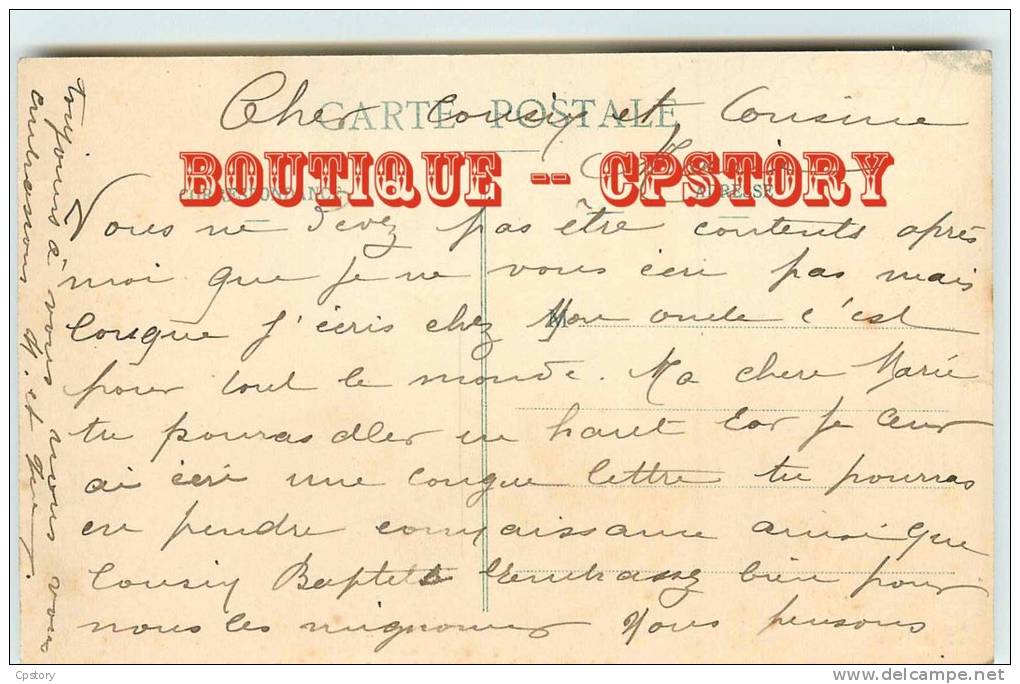 Cher Cousin et Cousine
CARTE POSTALE
BOUTIQUE -- CPSTORY
CORRESPONDANCE
ADRESSE
Vous ne devez pas être contents après
moi que je ne vous écri pas mais
lorsque j'écris chez Mon oncle c'est
pour tout le monde. Ma chere Marie
tu pouras aller en haut car je leur
ai écri une longue lettre tu pourras
en prendre connaissance ainsi que
Cousin Baptiste Embrassez bien pour
nous les mignonnes Nous pensons
toujours à vous nous vous
embrassons M. et
Cpstory
delcampe.net